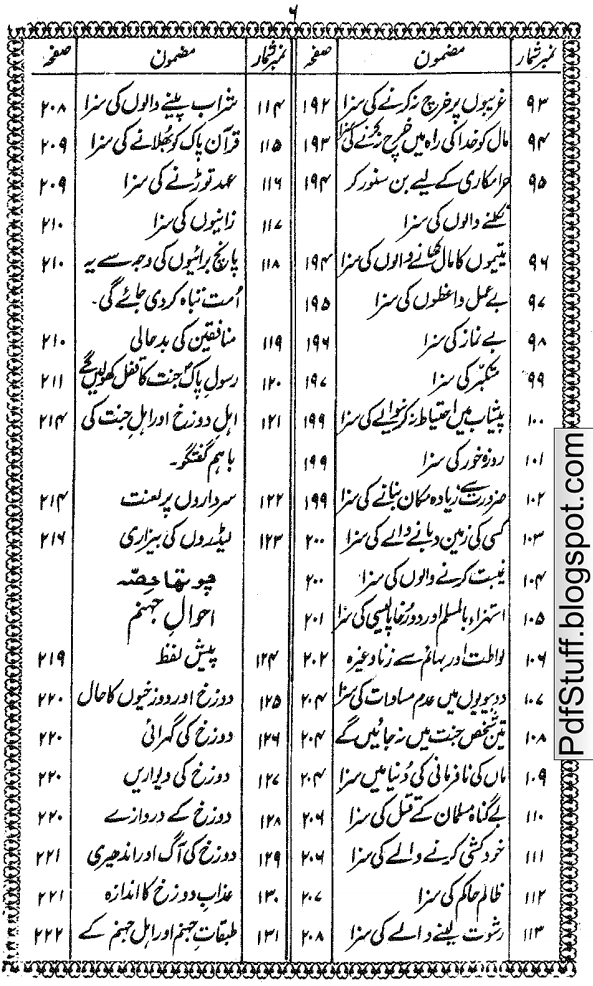 ۶
نمبر شمار مضمون صفحہ
۹۳ غریبوں پر خرچ نہ کرنے کی سزا ۱۹۲
۹۴ مال کو خدا کی راہ میں خرچ نہ کرنے کی سزا ۱۹۳
۹۵ حرامکاری کے لیے بن سنور کر ۱۹۴
نکلنے والوں کی سزا
۹۶ یتیموں کا مال کھانے والوں کی سزا ۱۹۴
۹۷ بے عمل واعظوں کی سزا ۱۹۵
۹۸ بے نماز کی سزا ۱۹۶
۹۹ متکبّر کی سزا ۱۹۷
۱۰۰ پیشاب میں احتیاط نہ کرنیوالے کی سزا ۱۹۹
۱۰۱ روزہ خور کی سزا ۱۹۹
۱۰۲ ضرورت سے زیادہ مکان بنانے کی سزا ۱۹۹
۱۰۳ کسی کی زمین دبانے والے کی سزا ۲۰۰
۱۰۴ غیبت کرنے والوں کی سزا ۲۰۰
۱۰۵ استہزاء بالمسلم اور دورُخا پالیسی کی سزا ۲۰۱
۱۰۶ لواطت اور بہائم سے زنا وغیرہ ۲۰۲
۱۰۷ دو بیویوں میں عدم مساوات کی سزا ۲۰۴
۱۰۸ تین شخص جنت میں نہ جائیں گے ۲۰۴
۱۰۹ ماں کی نافرمانی کی دُنیا میں سزا ۲۰۴
۱۱۰ بے گناہ مسلمان کے قتل کی سزا ۲۰۶
۱۱۱ خودکشی کرنے والے کی سزا ۲۰۶
۱۱۲ ظالم حاکم کی سزا ۲۰۷
۱۱۳ رشوت لینے والے کی سزا ۲۰۸
نمبر شمار مضمون صفحہ
۱۱۴ شراب پینے والوں کی سزا ۲۰۸
۱۱۵ قرآن پاک کو بُھلانے کی سزا ۲۰۹
۱۱۶ عہد توڑنے کی سزا ۲۰۹
۱۱۷ زانیوں کی سزا ۲۱۰
۱۱۸ پانچ برائیوں کی وجہ سے یہ ۲۱۰
اُمت تباہ کر دی جائے گی۔
۱۱۹ منافقین کی بدحالی ۲۱۰
۱۲۰ رسولِ پاکؐ جنت کا قفل کھولیں گے ۲۱۱
۱۲۱ اہل دوزخ اور اہلِ جنت کی ۲۱۴
باہم گفتگو۔
۱۲۲ سرداروں پر لعنت ۲۱۴
۱۲۳ لیڈروں کی بیزاری ۲۱۶
چوتھا حصّہ
احوالِ جہنم
۱۲۴ پیش لفظ ۲۱۹
۱۲۵ دوزخ اور دوزخیوں کا حال ۲۲۰
۱۲۶ دوزخ کی گہرائی ۲۲۰
۱۲۷ دوزخ کی دیواریں ۲۲۰
۱۲۸ دوزخ کے دروازے ۲۲۰
۱۲۹ دوزخ کی آگ اور اندھیری ۲۲۱
۱۳۰ عذابِ دوزخ کا اندازہ ۲۲۱
۱۳۱ طبقاتِ جہنم اور اہل جہنم کے ۲۲۲
PdfStuff.blogspot.com